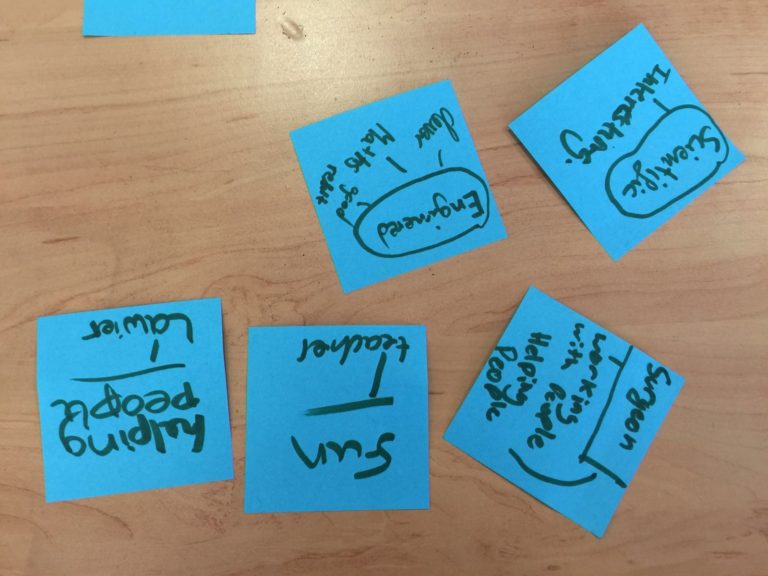 Scientific
Interesting.
Enginered
clever
Maths
good
Surgeon
working
with People
Helping
People
fun
teacher
helping
people
Lawier